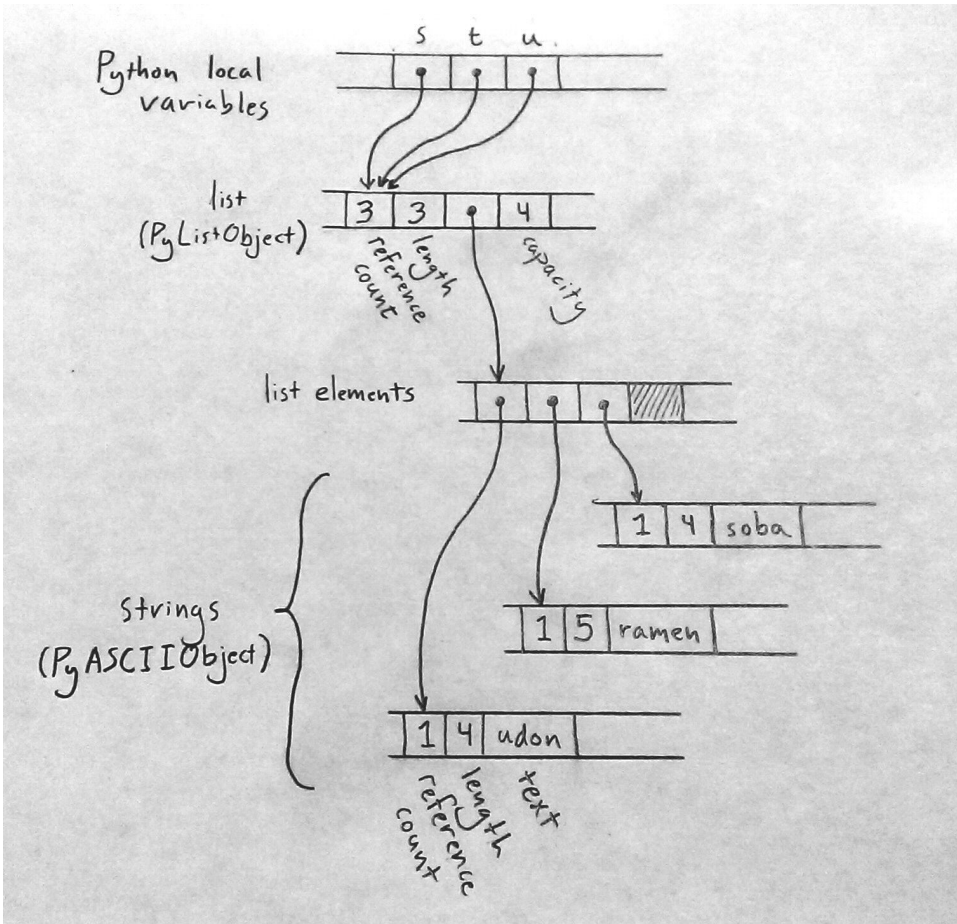 s t u
Python local
variables
list
(PyListObject)
3 3 4
reference
count
length
capacity
list elements
1 4 soba
Strings
(PyASCIIObject)
1 5 ramen
1 4 udon
reference
count
length
text